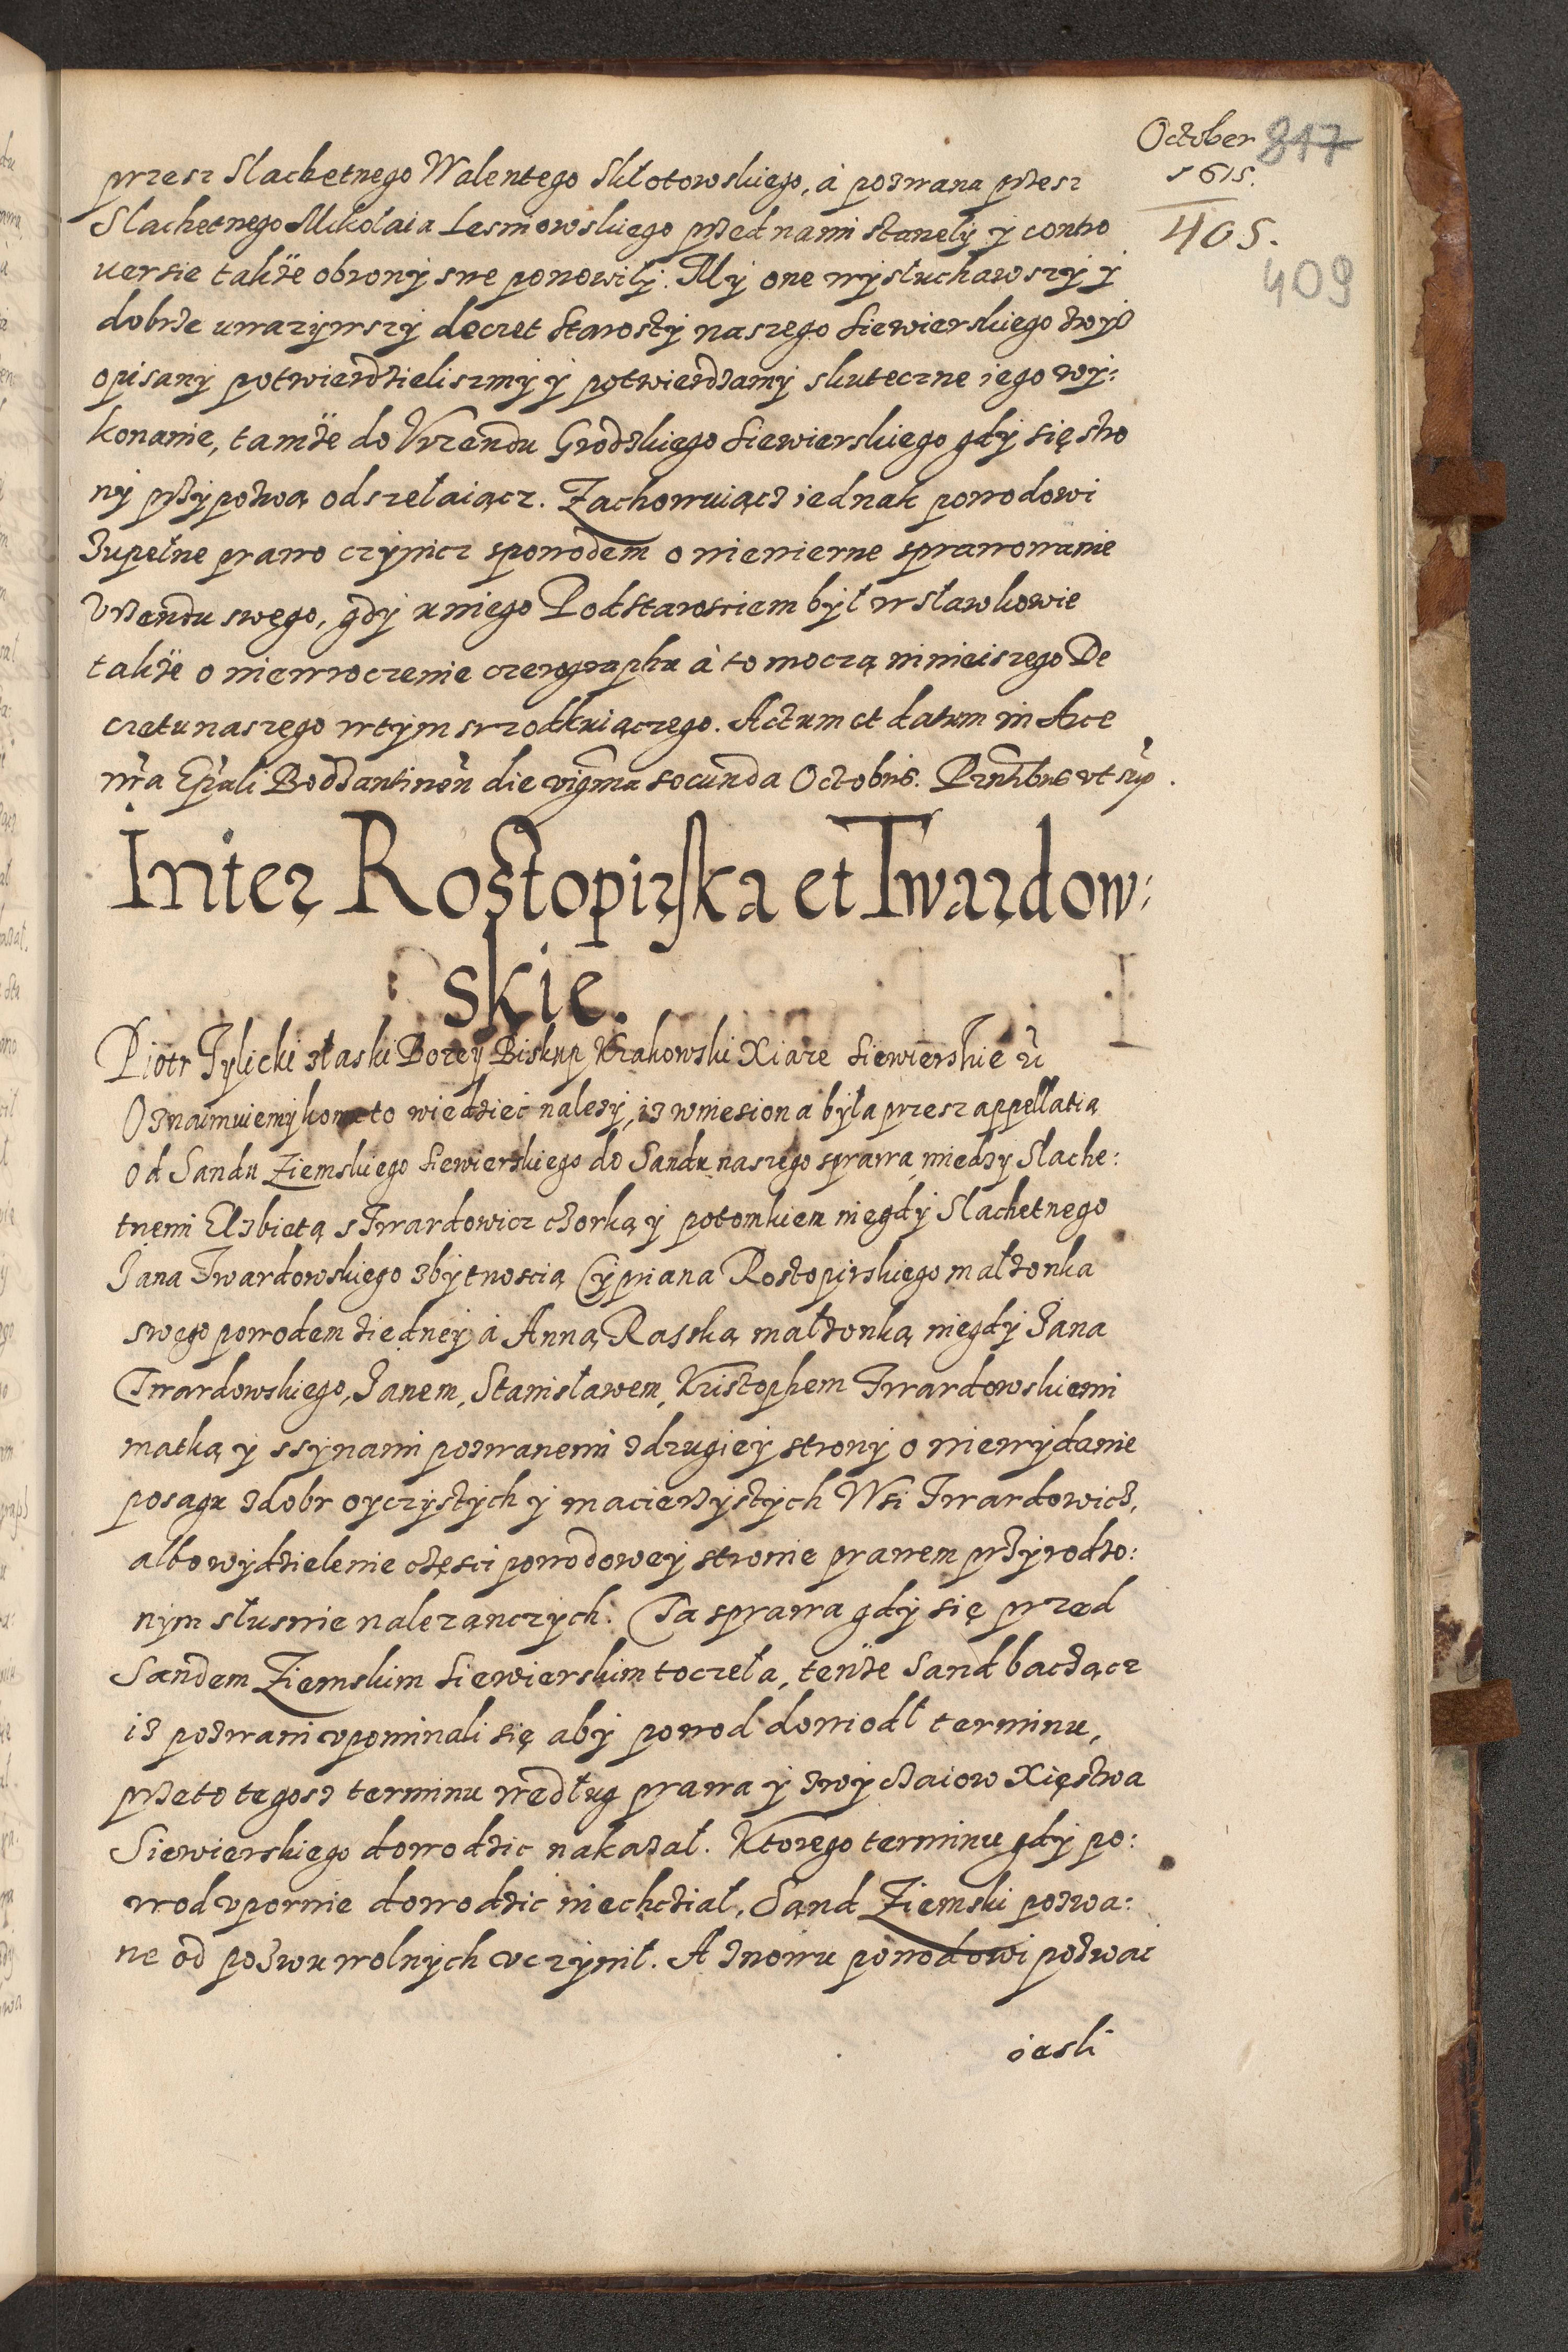 October 817
1615.
405.
409
przesz Slachetnego Walentego Skłotowskiego, á pozwana przesz
Slachetnego Mikołaia Lesniowskiego przed nami staneły y contro
uersie także obrony swe ponowiły. My one wysłuchawszy y
dobrze uwazywszy decret Starosty naszego Siewierskiego zwyż
opisany potwierdzieliszmy y potwierdzamy skuteczne iego wy:
konanie, tamże do Vrzendu Grodzkiego Siewierskiego gdy się stro
ny przypozwą odszełaiącz. Zachowuiącz iednak powodowi
zupełne prawo czynicz sponodem o niewierne sprawowanie
Vrzendu swego, gdy u niego Podstarosciem był w Sławkowie
także o niewroczenie czerographu á to moczą ninieiszego De
cretu naszego w tym srzodkuiączego. Actum et datum in Arce
nr̃a Ep̃ali Bodzantineñ die vigm̃a secunda Octobris. Pr̃ntibus vt sup̃.
Inter Rostopirska et Twardow:
skie.
Piotr Tylicki z łaski Bozey Biskup Krakowski Xiaze Siewierskie ec̃
Oznaimuiemy komu to wiedzieć nalezy, iz wniesiona była przesz appellatią
od Sandu Ziemskiego Siewierskiego do Sandu naszego sprawa miedzy Slache:
tnemi Elzbietą s Twardowicz czorką y potomkiem niegdy Slachetnego
Jana Twardowskiego zbytnoscią Cypriana Rostopirskiego małzonka
swego powodem ziedney á Anną Raską małzonką niegdy Jana
Twardowskiego, Janem, Stanisławem, Kristophem Twardowskiemi
matką y ssynami pozwanemi z drugiey strony o niewydanie
posagu z dobr oyczystych y macierzystych Wsi Twardowicz,
albo wydzielenie części powodowey stronie prawem przyrodzo:
nym słusnie nalezanczych. Ta sprawa gdy się przed
Sandem Ziemskim Siewierskim toczeła, tenże Sand baczącz
iz pozwani vpominali się aby powod dowiodł terminu,
przeto tegosz terminu według prawa y zwyczaiow Xięstwa
Siewierskiego dowodzic nakazał. Ktorego terminu gdy po:
wod vpornie dowodzic niechciał, Sand Ziemski pozwa:
ne od pozwu wolnych vczynił. A znowu powodowi pozwac
iesli